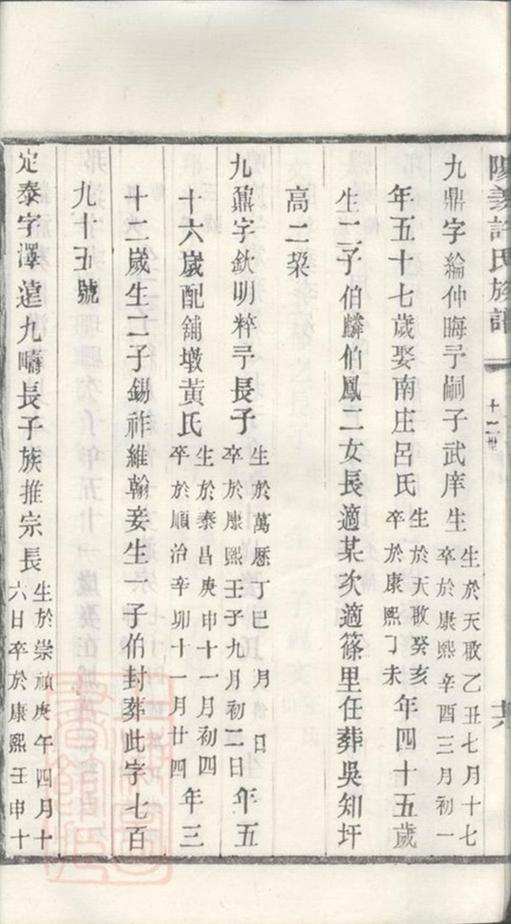 陽羨許氏族譜 十二世 六
九鼎字綸仲晦予嗣子武庠生 生於天啟乙丑七月十七 卒於康熙辛酉三月初一
年五十七歲娶南庄呂氏 生於天啟癸亥 卒於康熙丁未 年四十五歲
生二子伯麟伯鳳二女長適某次適篠里任葬吳知圩
高二叅
九鼐字欽明粹予長子 生於萬曆丁巳 月 日 卒於康熙壬子九月初二日 年五
十六嵗配舖墩黃氏 生於泰昌庚申十一月初四 卒於順治辛卯十一月廿四 年三
十二歲生二子錫祚維翰妾生一子伯封葬此字七百
九十五號
定泰字澤遠九疇長子族推宗長 生於崇禎庚午四月十 六日卒於康熙壬申十